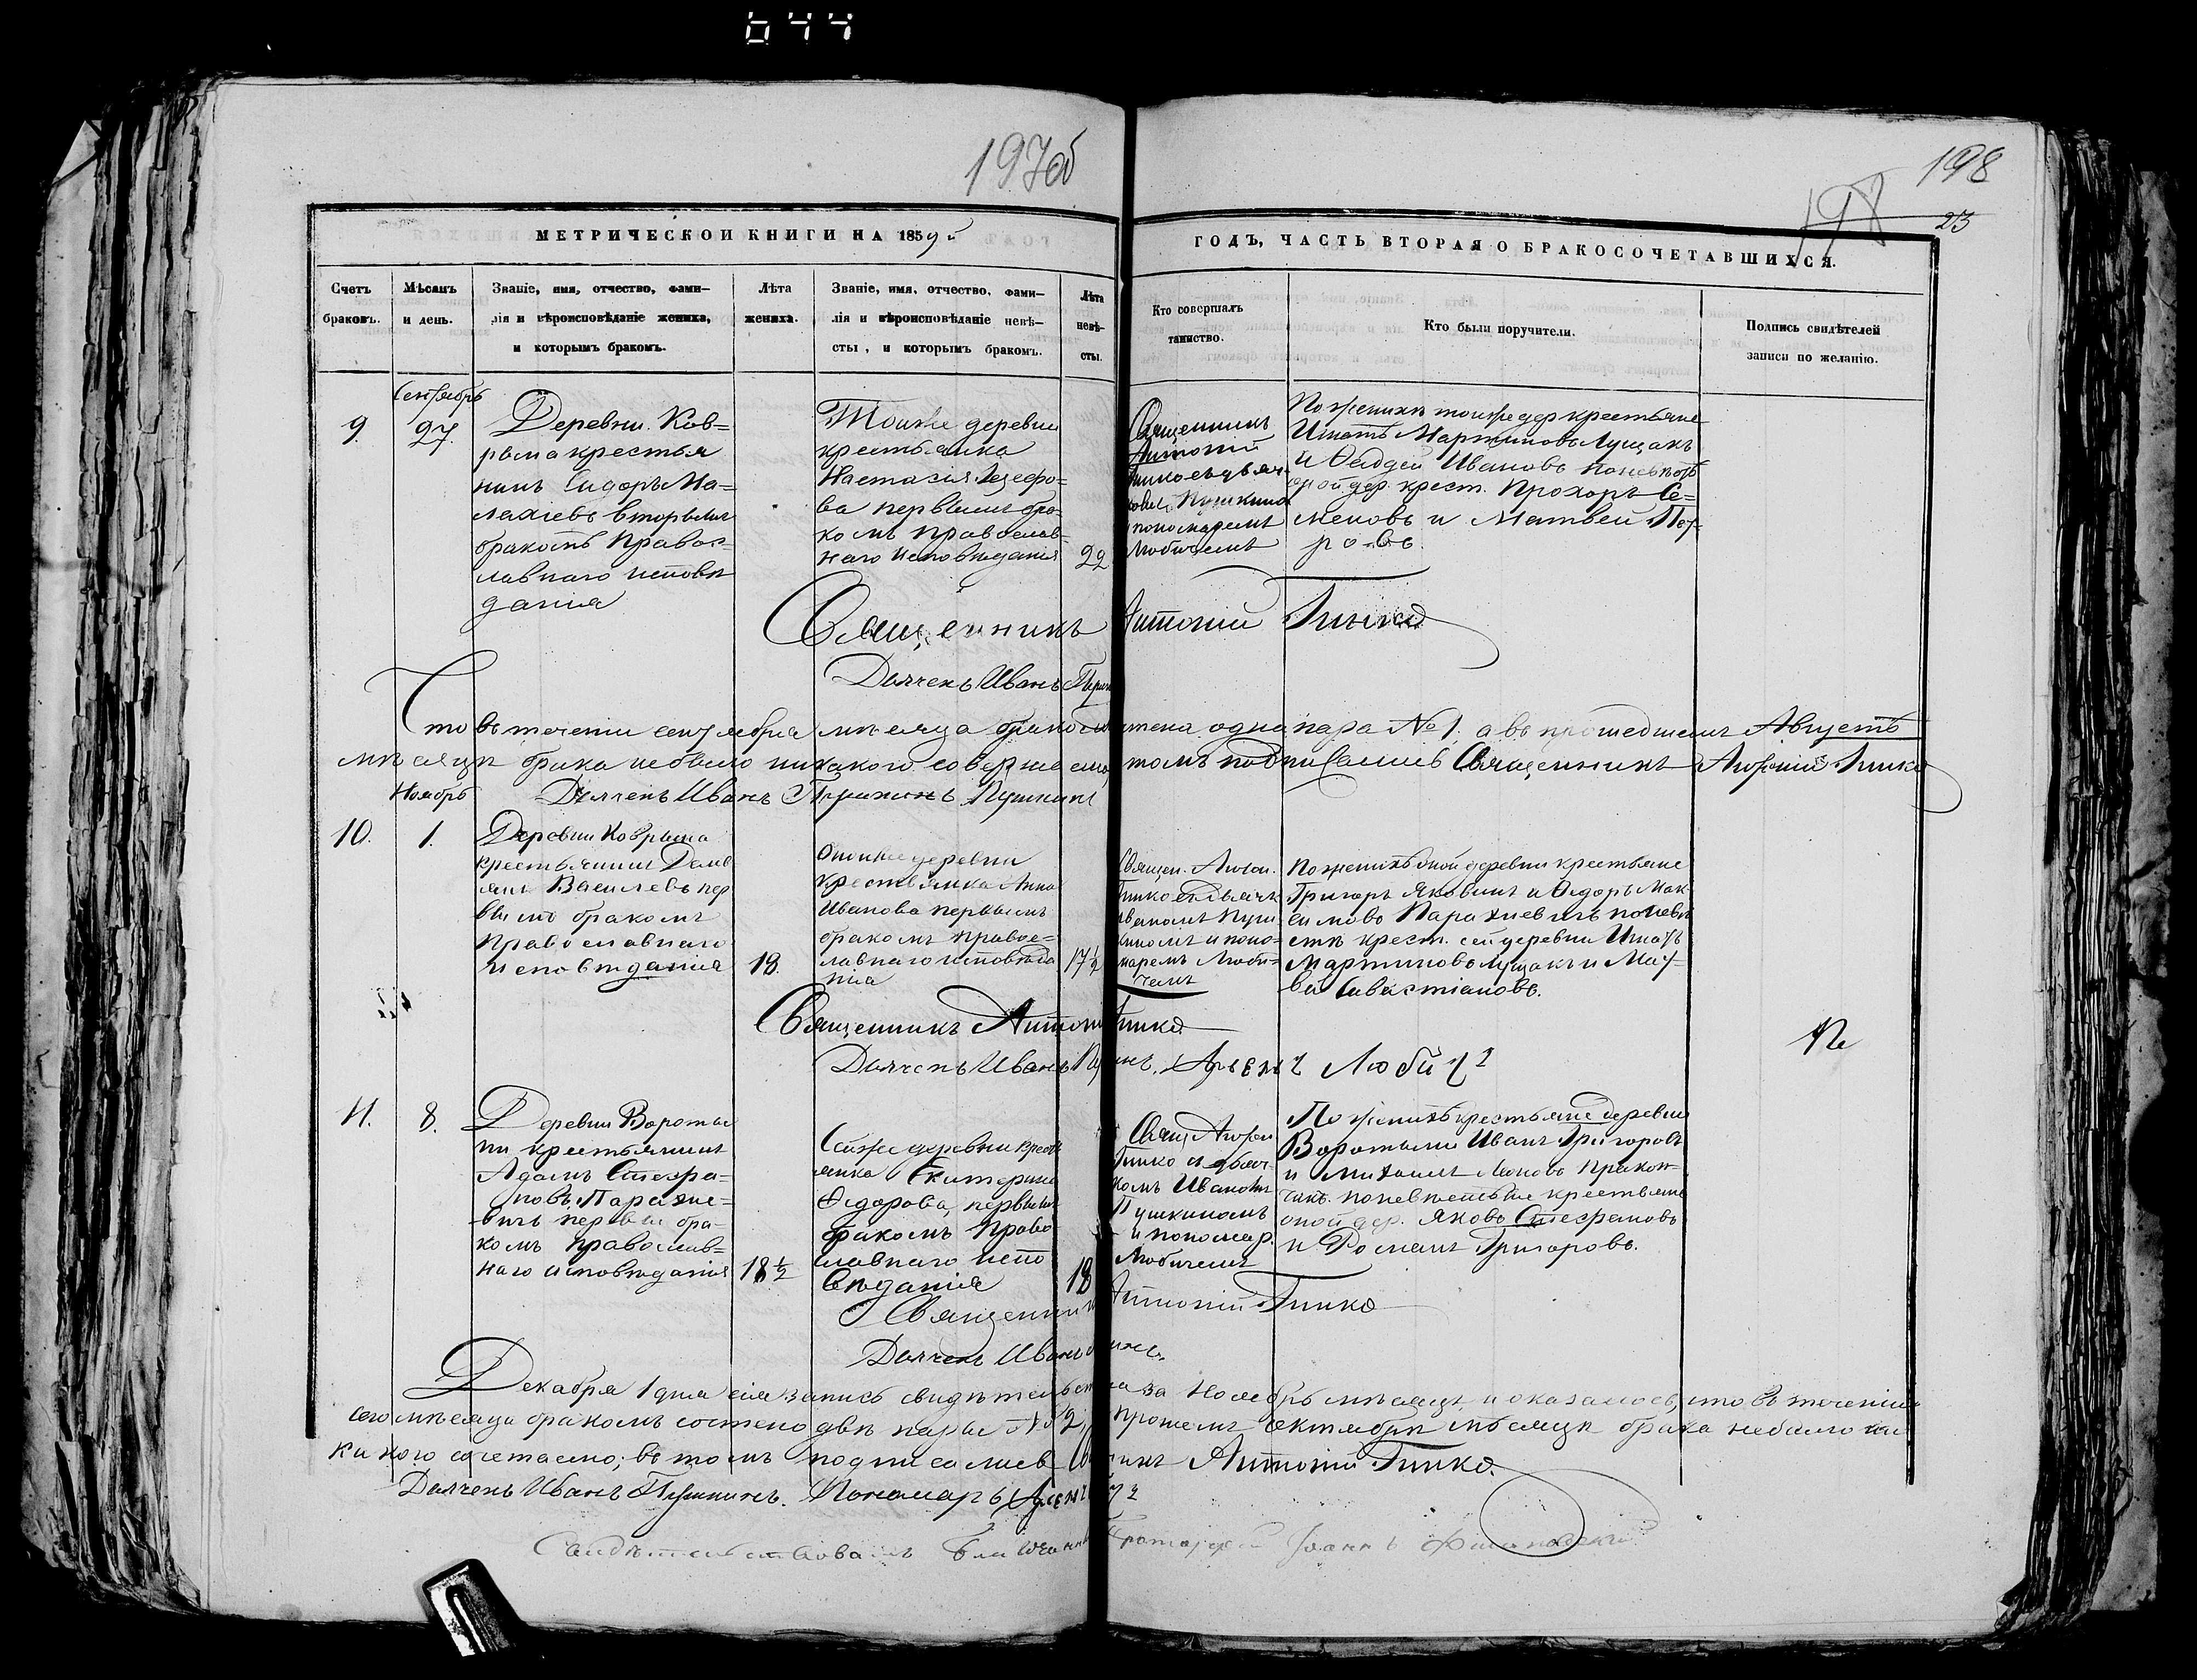 644
197об
198
198
23
МЕТРИЧЕСКОЙ КНИГИ НА 1859й
ГОДЪ, ЧАСТЬ ВТОРАЯ О БРАКОСОЧЕТАВШИХСЯ.
Счетъ
браковъ.
Мѣсяцъ
и день.
Званіе, имя, отчество, фами-
лія и вѣроисповѣданіе жениха,
и которымъ бракомъ.
Лѣта
жениха.
Званіе, имя, отчество, фами-
лія и вѣроисповѣданіе невѣ-
сты, и которымъ бракомъ.
Лѣта
невѣ-
сты.
Кто совершалъ
таинство.
Кто были поручители.
Подпись свидѣтелей
записи по желанію.
9.
Сентябрь
27.
Деревни Ков=
рына крестья
нинъ Сидоръ Ма=
лахіевъ вторымъ
бракомъ Правос=
лавнаго исповѣ
данія
Тоиже деревни
крестьянка
Настасія
ва первымъ бра
комъ православ=
наго исповѣданія
22
Священникъ
Антоній
Пушкина
пономаремъ
Любичемъ
По женихѣ тоиже дер крестьяне
Игнатъ Мартиновъ Лущакъ
и Фаддей Ивановъ
дер. крест. Прохоръ Се=
меновъ и Матвей Пет
ровъ.
Священникъ Антоній Гинко
Дьячекъ Иванъ
Что въ теченіи сентября мѣсяца одна пара №1. а въ прошедшемъ Августѣ
мѣсяцѣ брака небыло никакого совершено томъ подписались Священникъ Антоній Гинко
Дьячекъ Иванъ Пушкинъ
Ноябрь
10.
1.
Деревни Коврына
крестьянинъ Демь
янъ Василевъ пер
вымъ бракомъ
Православнаго
исповѣданія
18.
деревни
крестьянка Анна
Иванова первымъ
бракомъ правос=
лавнаго исповѣда
нія
17½
Священ. Антон.
Гинко съ Дьячк
Иваномъ Пуш
киномъ и поно=
маремъ Люби=
чемъ
По женихѣ оной деревни крестьяне
Григоръ Яковлевъ и Ѳедоръ Мак
симовъ Парахневичъ по невѣ
стѣ крест. сей деревни Игнатъ
Мартиновъ Лущакъ и Мат
вей Савастіановъ.
Священникъ Антоній Гинко
Дьячекъ Иванъ Арсеній Любичъ
11.
8.
Деревни Вороты
ни крестьянинъ
Адамъ Стефа=
новъ Парахне=
вичъ первымъ бра=
комъ православ=
наго исповѣданія
18½
Сейже деревни крестьянка
Екатерина
Ѳедорова, первымъ
бракомъ Право
славнаго испо
вѣданія
18
Свящ Антон
Гинко и дьяч
комъ Иваномъ
Пушкиномъ
и пономар.
Любичемъ
По женихѣ крестьяне деревни
Воротыни Иванъ Григоровъ
и Михаилъ Леоновъ
по невѣстѣ крестьяне
оной дер. Яковъ Стефановъ
и Романъ Григоровъ.
Священникъ Антоній Гинко
Дьячекъ Иванъ
Декабря 1 дня сія запись свидѣтельствована за Ноябрь мѣсяцъ, и оказалось, что въ теченіи
сего мѣсяца бракомъ двѣ пары №2, Октябрѣ мѣсяцѣ брака небыло ни
какого сочетано; въ томъ подписались Антоній Гинко.
Дьячекъ Иванъ Пушкинъ. Пономарь
Свидѣтельствовалъ Протоіерей Іоаннъ